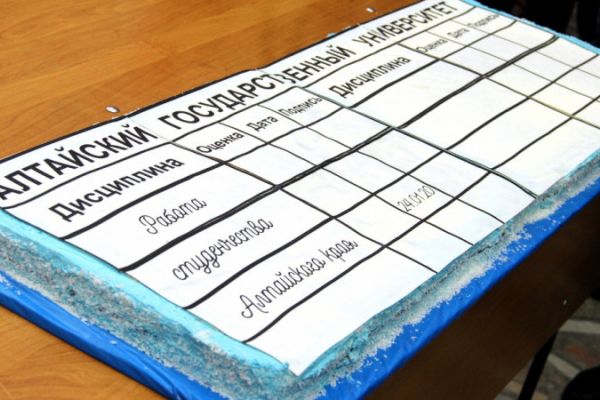 АЛТАЙСКИЙ ГОСУДАРСТВЕННЫЙ УНИВЕРСИТЕТ
Дисциплина Оценка Дата Подпись Дисциплина Оценка Дата Подпись
Работа
студенчества
Алтайского края 24.01.20